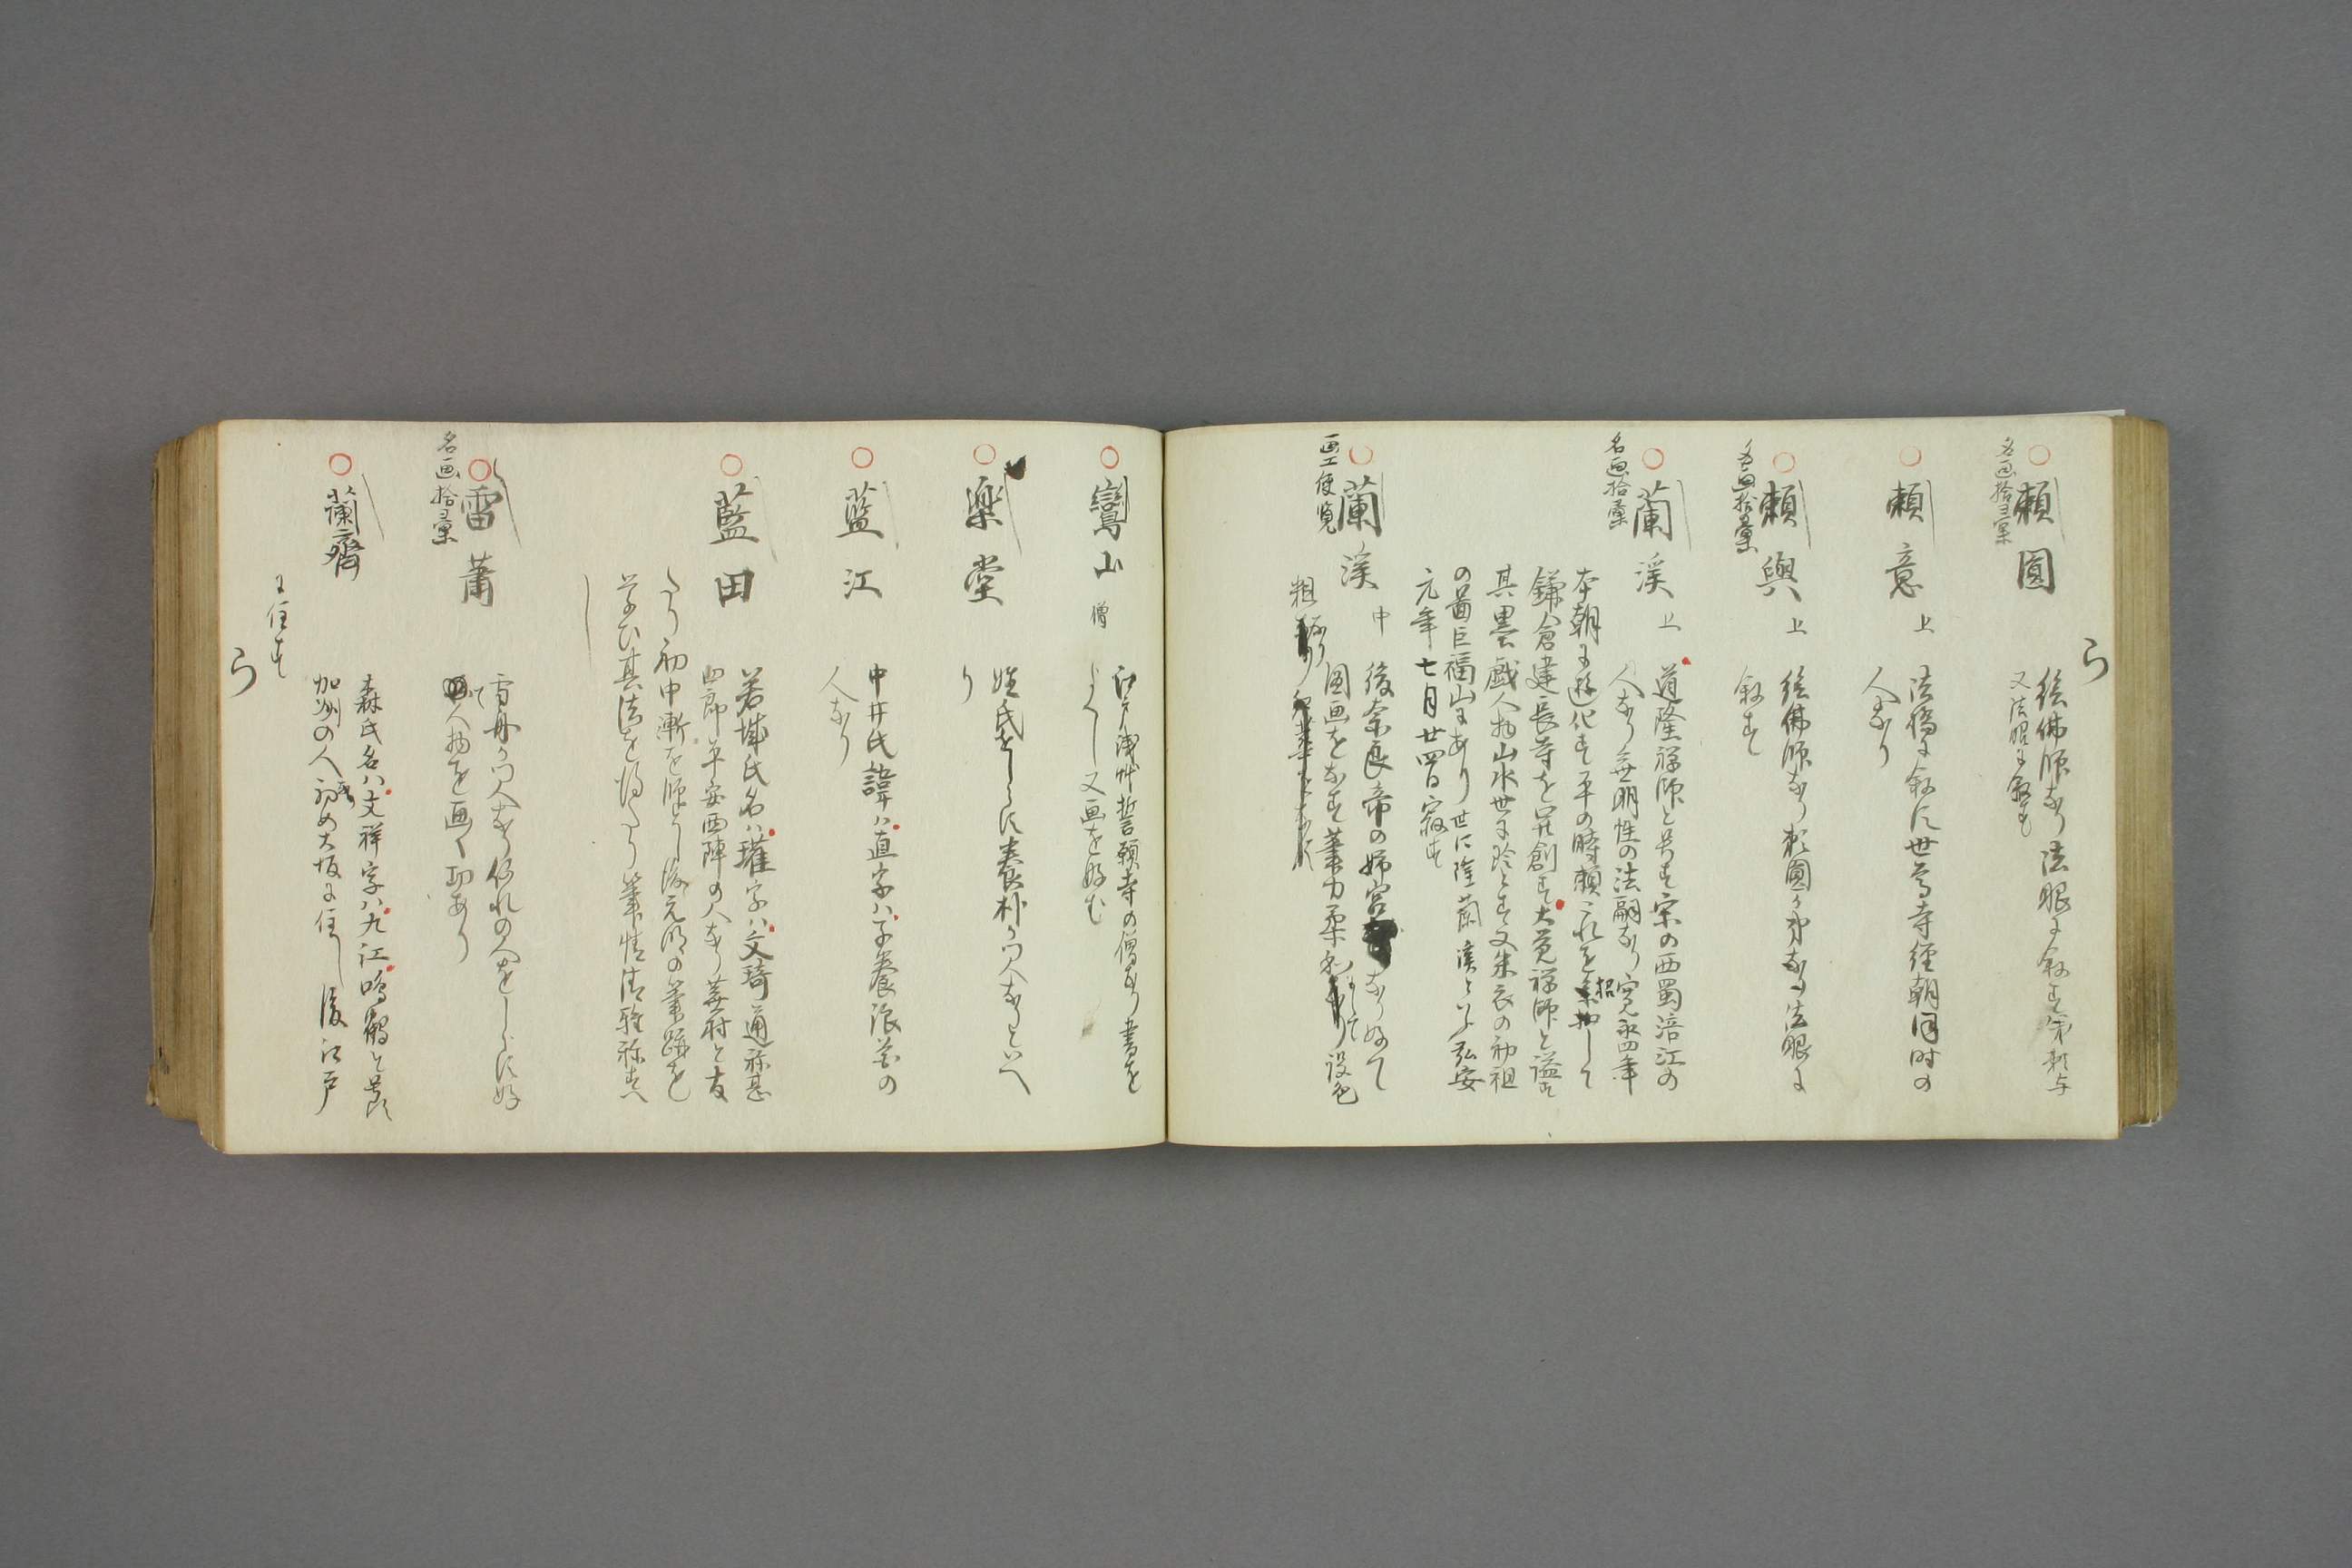 ら
頼圓
名画拾彙
絵佛師なり法眼に叙す弟頼与
又法眼に叙す
頼意 上
法橋に叙に世尊寺経朝同時の
人なり
頼與 上
名画拾彙
絵佛師なり頼圓か弟なり法眼に
叙す
蘭渓 上
名画拾彙
道隆禅師と号す宋の西蜀涪江の
人なり無明性の法嗣なり寛永四年
本朝に遊化す平の時頼これを招して
鎌倉建長寺を開創す大覚禅師と謚す
其墨戯人物山水世に珍とす文朱衣の初祖
の図巨福山にあり世に隆蘭渓といふ弘安
元年七月廿四日寂す
蘭渓 中
画工便覧
後奈良帝の姉宮なり好て
図画をなす筆力柔和にして設色
粗
鸞山 僧
江戸浅艸誓願寺の僧なり書を
よくし又画を好む
楽堂
姓氏をしらに養朴か門人なりといへ
り
藍江
中井氏諱ハ直字ハ子養浪花の
人なり
藍田
若城氏名ハ瓘字ハ文琦通称甚
四郎平安西陣の人なり蕪村と友
たり初中漸を師とし後元明の筆蹟を
学ひ其法を得たり筆情清雅称すへ
し
雷蕭
名画拾彙
雪舟か門人なり何れの人をしらに好
て人物を画く功あり
蘭齋
森氏名ハ文祥字ハ九江鳴鶴と号
加州の人初め大坂に住し後江戸
に住す
ら